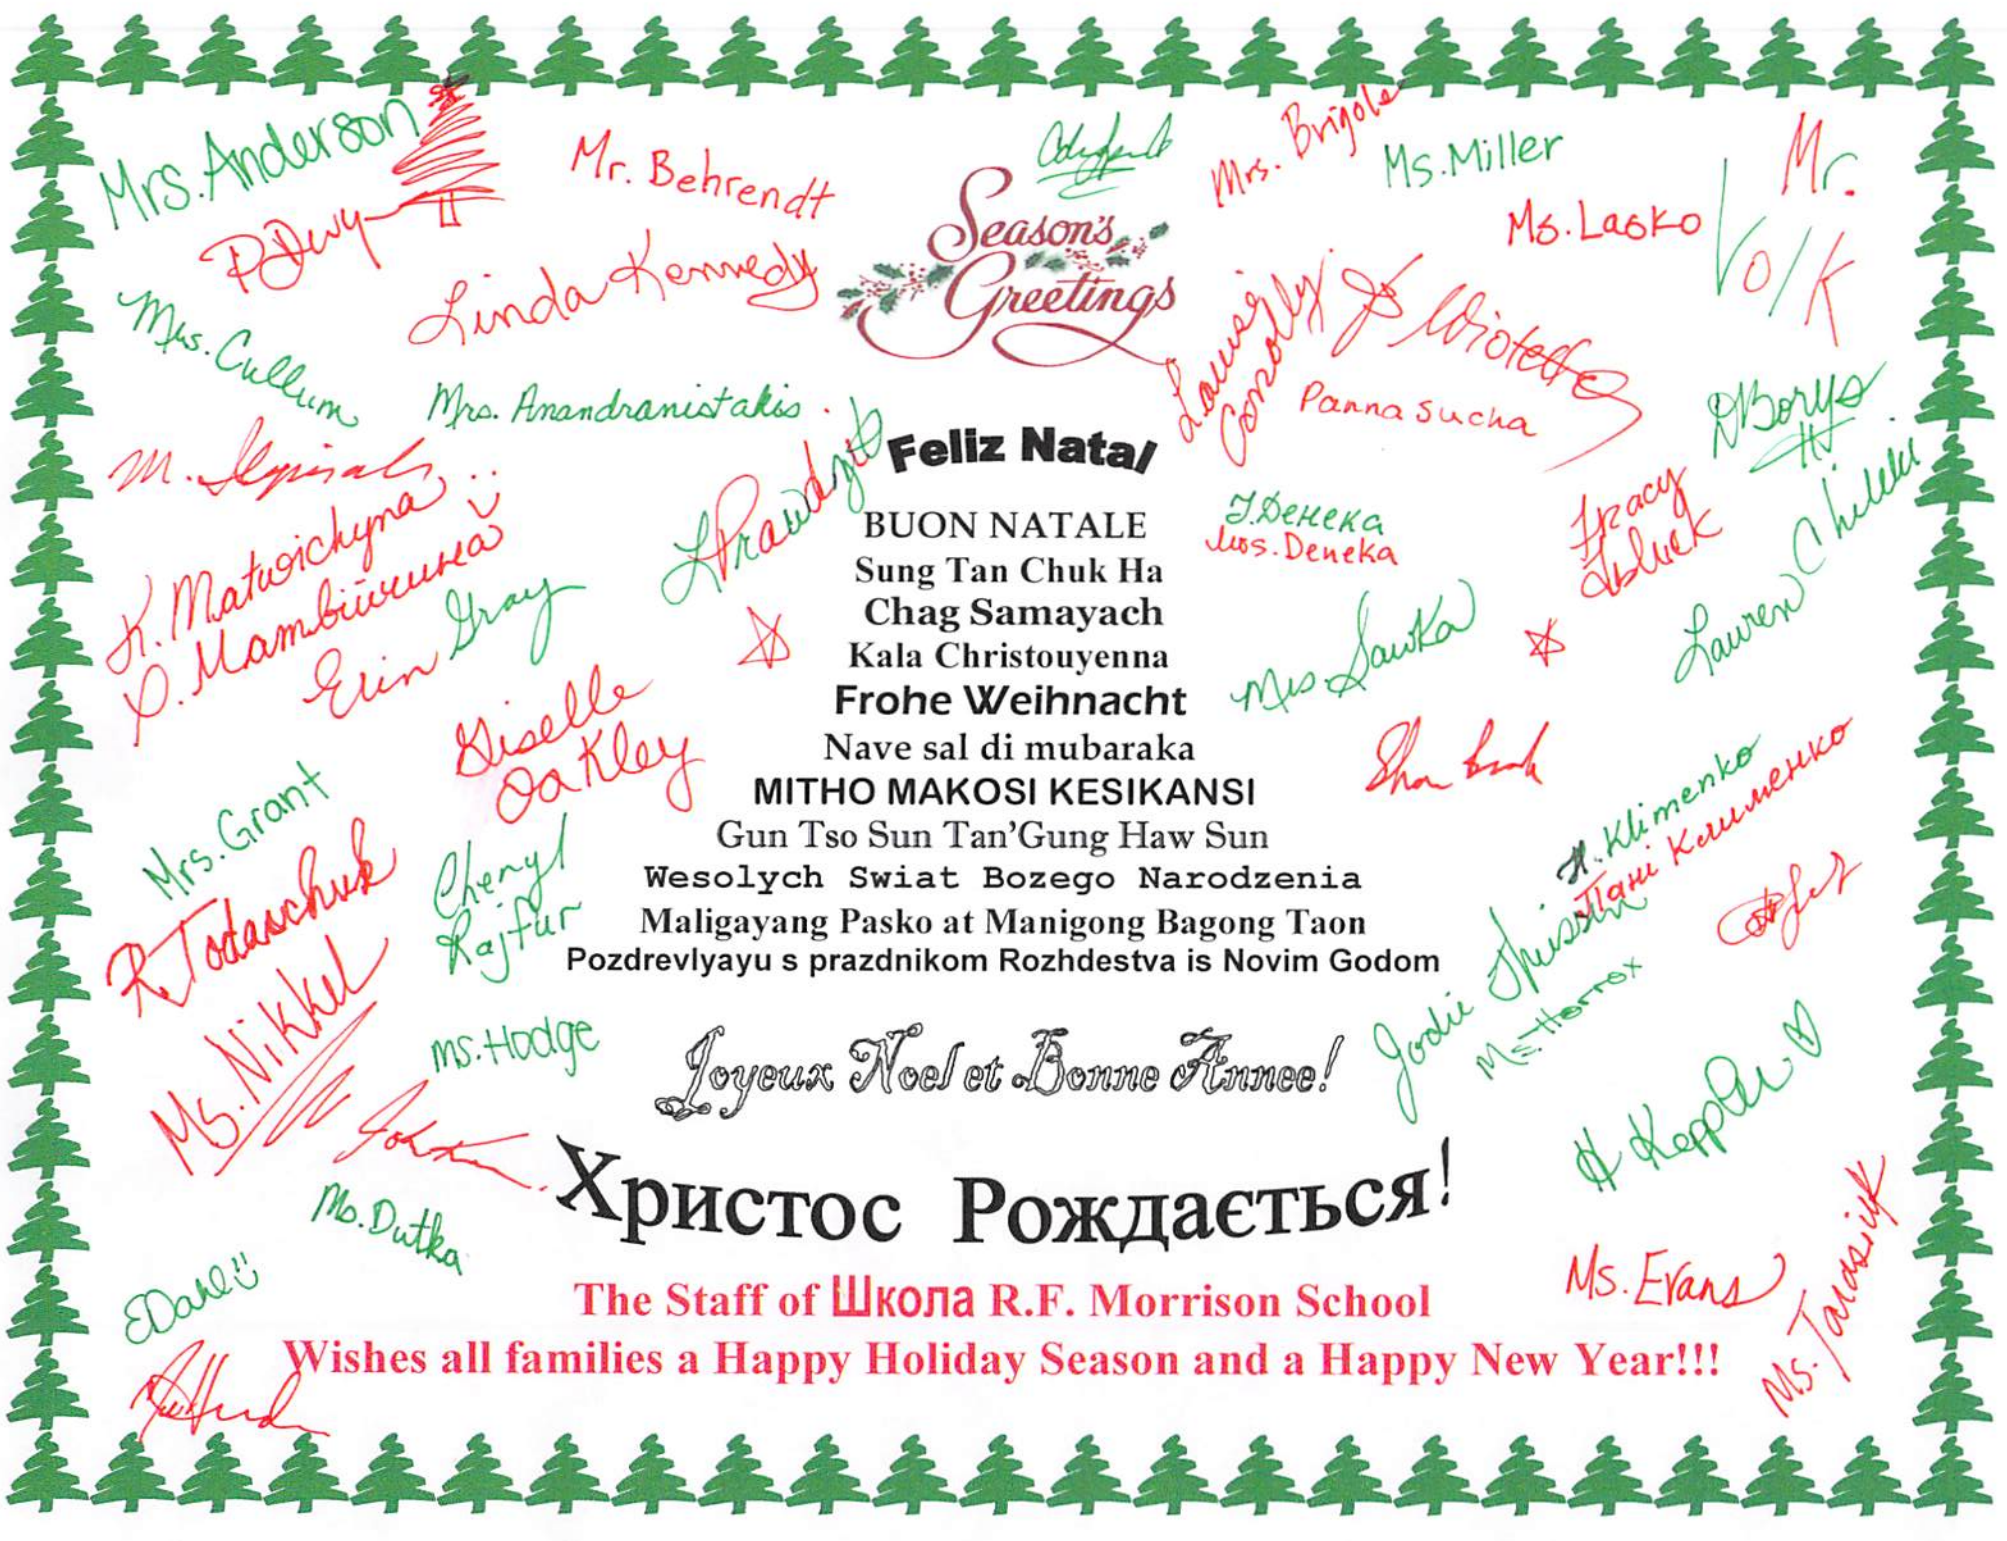 Mrs. Anderson
Mr. Behrendt
Mrs. Brigole
Ms. Miller
Mr. Volk
Ms. Lasko
Season's
Greetings
Linda Kennedy
Mrs. Cullum
Mrs. Anandranistakis
Panna Sucha
D Borys
Feliz Natal
BUON NATALE
Sung Tan Chuk Ha
Chag Samayach
Kala Christouyenna
Frohe Weihnacht
Nave sal di mubaraka
MITHO MAKOSI KESIKANSI
Gun Tso Sun Tan'Gung Haw Sun
Wesolych Swiat Bozego Narodzenia
Maligayang Pasko at Manigong Bagong Taon
Pozdrevlyayu s prazdnikom Rozhdestva is Novim Godom
Joyeux Noel et Bonne Annee!
Христос Рождається!
The Staff of Школа R.F. Morrison School
Wishes all families a Happy Holiday Season and a Happy New Year!!!
K. Matwichyna
Х. Матвійчина
Erin Gray
Giselle
Oakley
Mrs. Grant
R. Todaschuk
Cheryl
Rajfur
Ms. Nikkel
Ms. Hodge
Ms. Dutka
EDahl
Mrs. Deneka
Mrs. Sawka
Tracy
Lauren
H. Klimenko
Пані Клименко
Jodie
Ms. Horrox
H Keppler
Ms. Evans
Ms. Tarasiuk